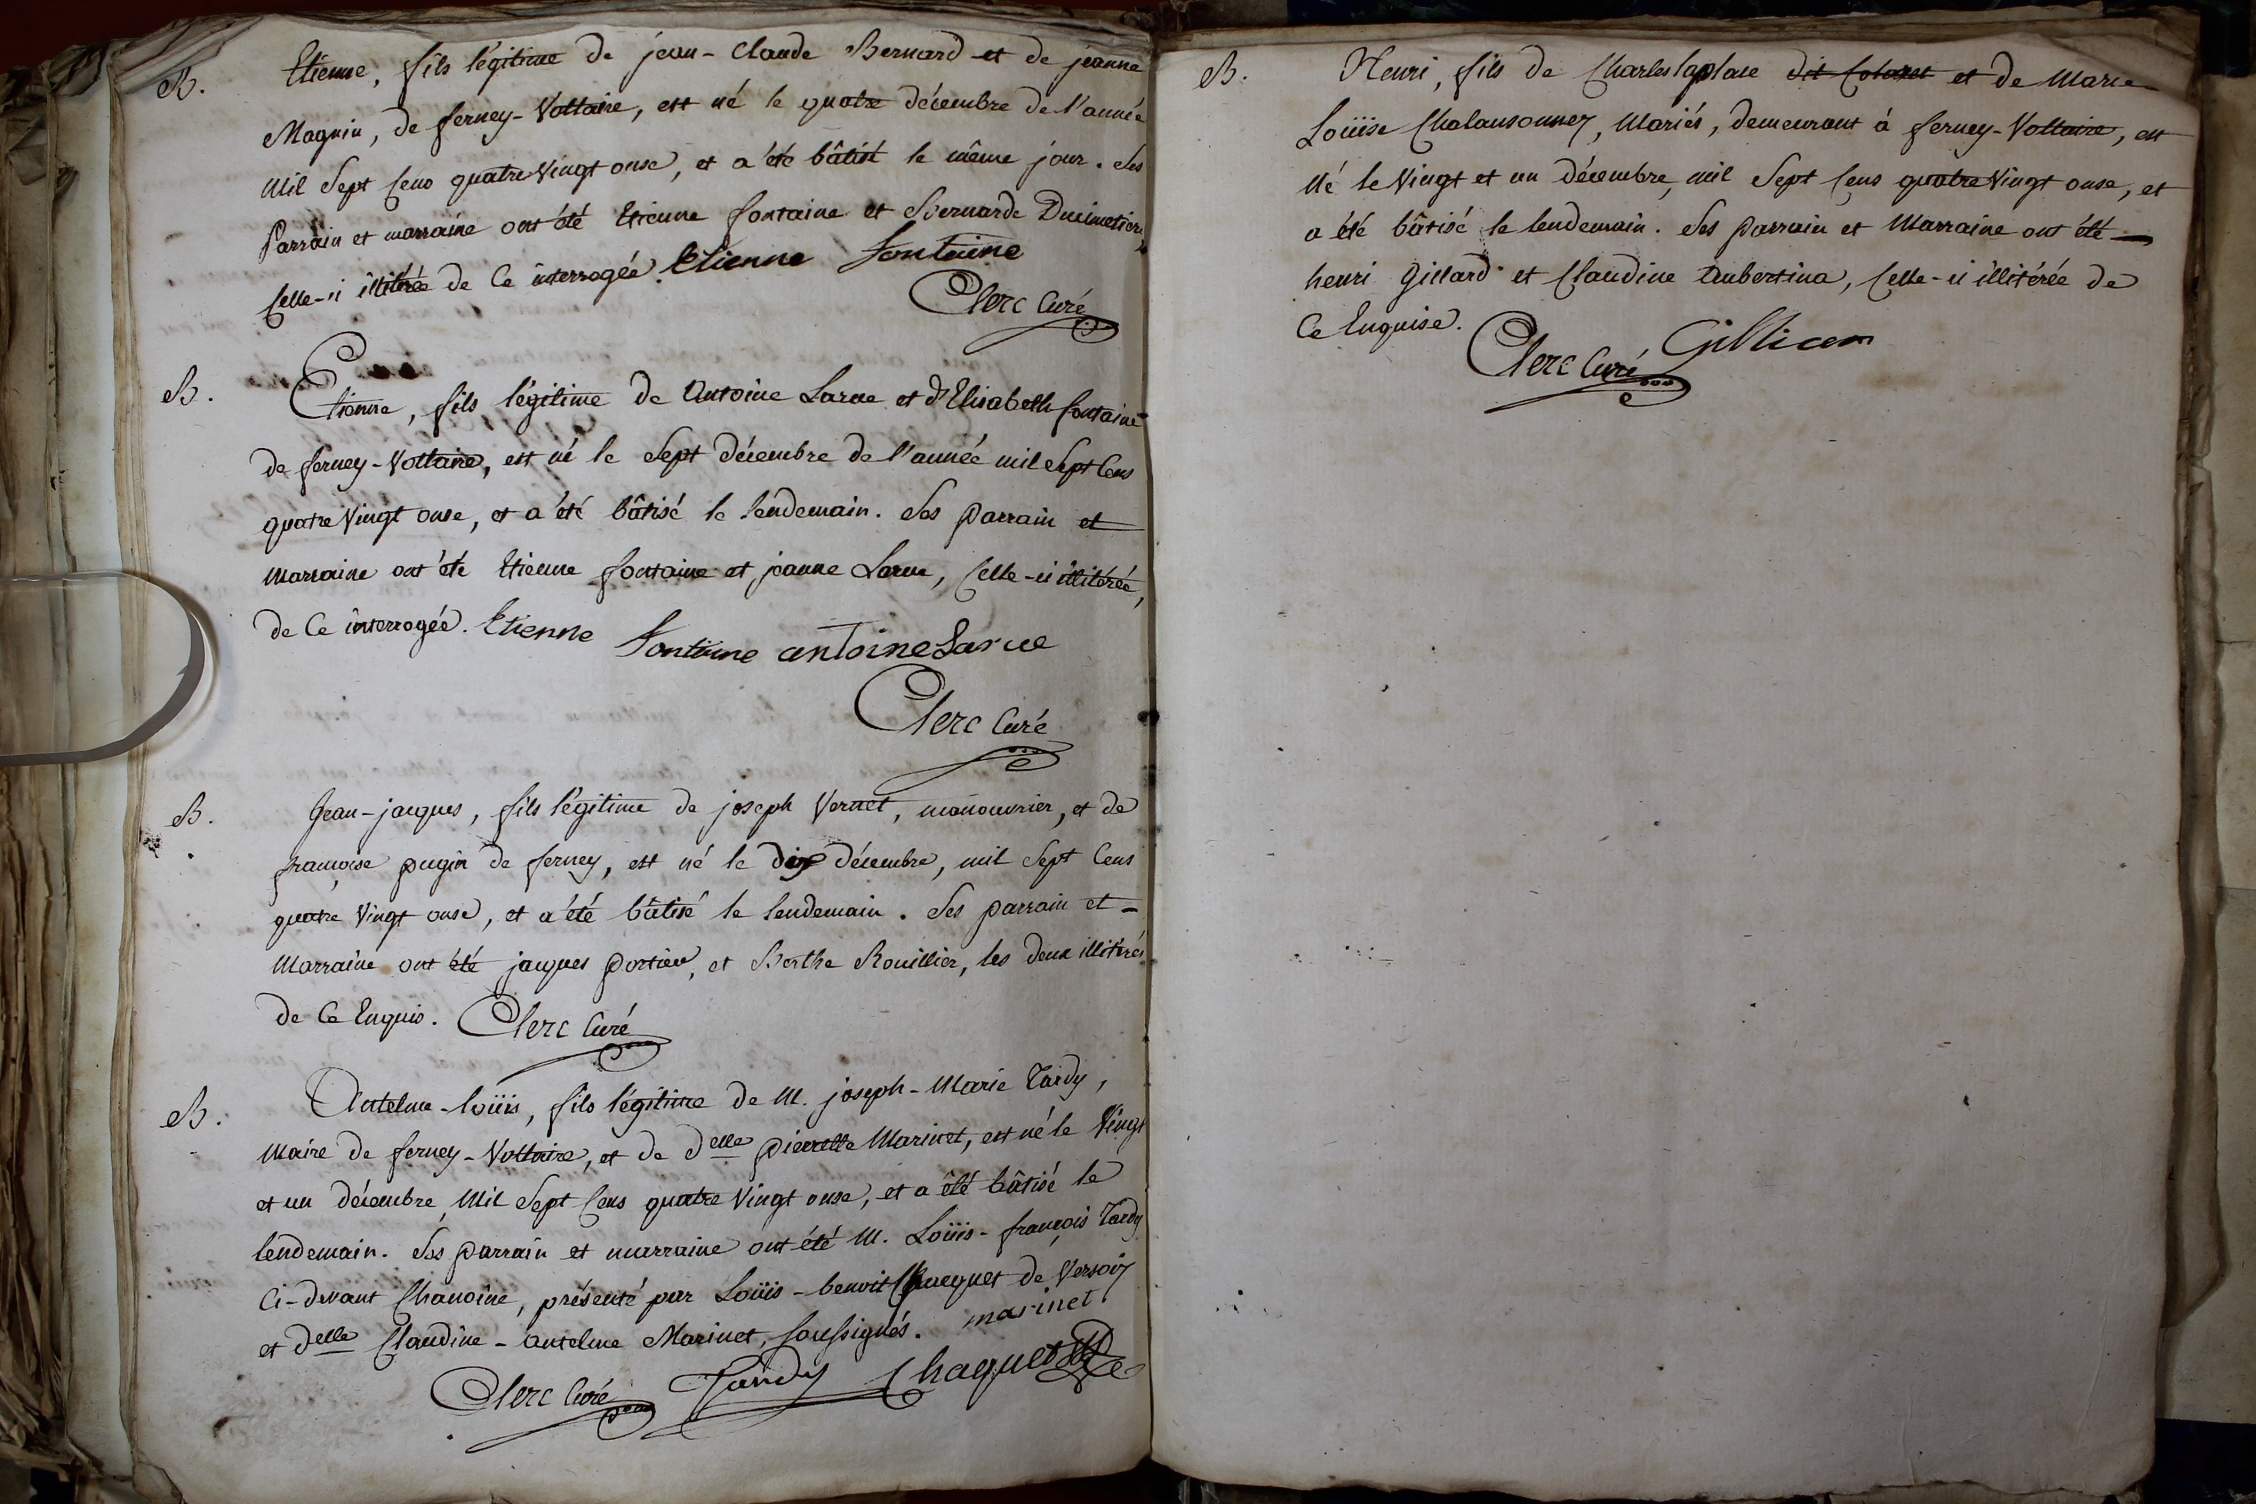 B. Etienne, fils légitime de jean-Claude Bernard et de jeanne
Magnin, de ferney-Voltaire, est né le quatre décembre de l'année
Mil Sept Cens quatre Vingt onse, et a été bâtisé le même jour. Ses
Parrain et marraine ont été Etienne fontaine et Bernarde Ducimetiere
Celle-ci illitérée de Ce interrogée. Etienne fontaine
Clerc Curé
B. Etienne, fils légitime de Antoine Larue et d'Elisabeth fontaine
de ferney-Voltaire, est né le Sept décembre de l'année mil Sept Cens
quatre Vingt onse, et a été bâtisé le lendemain. Ses parrain et
Marraine ont été Etienne fontaine et jeanne Larue, Celle-ci illitérée,
de Ce interrogée. Etienne fontaine antoine Larue
Clerc Curé
B. Jean-jacques, fils légitime de joseph Vernet, manouvrier, et de
françoise pugin de ferney, est né le dix décembre, mil Sept Cens
quatre Vingt onse, et a été bâtisé le lendemain. Ses parrain et
Marraine ont été jacques portier, et Berthe Rouillier, les deux illitérés
de Ce Enquis. Clerc Curé
B. Antelme-Loüis, fils légitime de M. joseph-Marie Tardy,
Maire de ferney-Voltaire, et de delle pierrette Marinet, est né le Vingt
et un décembre, Mil Sept Cens quatre Vingt onse, et a été bâtisé le
lendemain. Ses parrain et marraine ont été M. Loüis-françois Tardy
Ci-devant Chanoine, présenté par Loüis-benoit Chaquet de Versoix
et delle Claudine-antelme Marinet, soussignés. marinet
Clerc Curé Tardy Chaquet
B. Henri, fils de Charles laplace dit et de Marie
Loüise Chalansonney, Mariés, demeurant à ferney-Voltaire, est
né le Vingt et un décembre, mil Sept Cens quatre Vingt onse, et
a été bâtisé le lendemain. Ses parrain et Marraine ont été
henri Gillard et Claudine Aubertina, Celle-ci illitérée de
Ce Enquise.
Clerc Curé